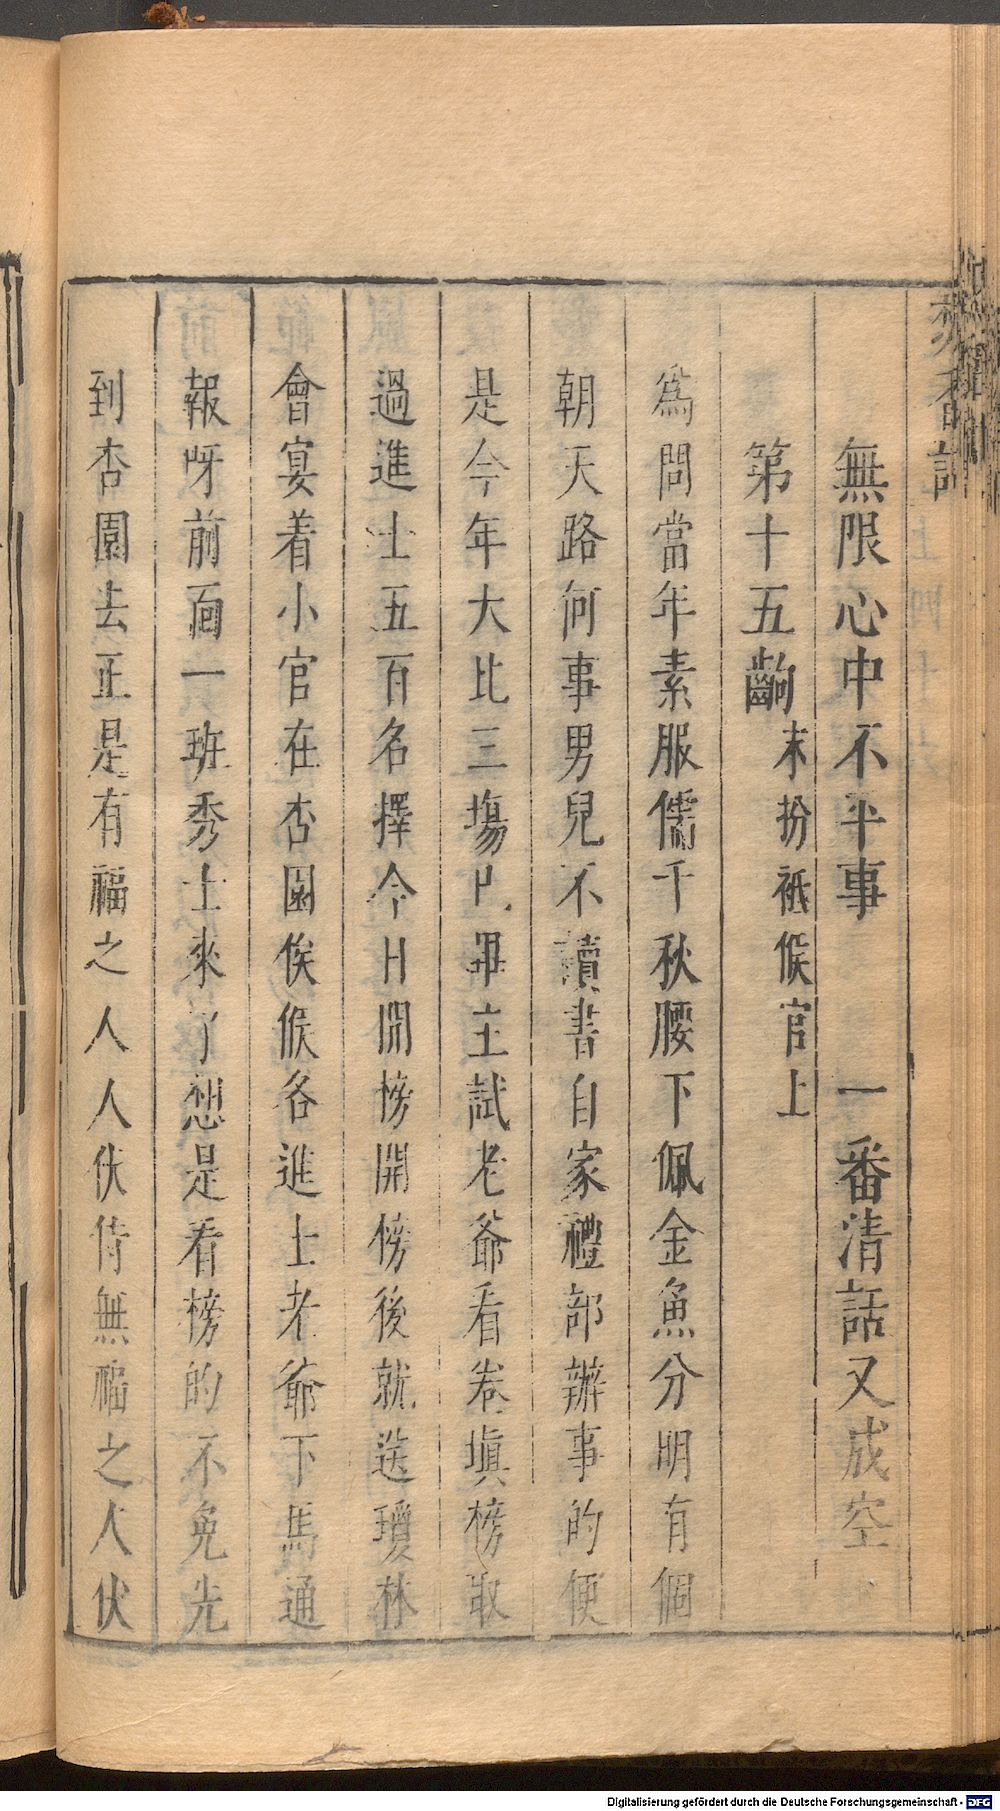 焚香記
無限心中不平事　一番清話又成空
第十五齣　末扮祇候官上
爲問當年素服儒千秋腰下佩金魚分明有個
朝天路何事男兒不讀書自家禮部辦事的便
是今年大比三塲已畢主試老爺看卷塡榜取
過進士五百名擇今日開榜開榜後就送瓊林
會宴着小官在杏園俟候各進士老爺下馬通
報呀前面一班秀士來了想是看榜的不免先
到杏園去正是有福之人人伏侍無福之人伏
Digitalisierung gefördert durch die Deutsche Forschungsgemeinschaft - DFG